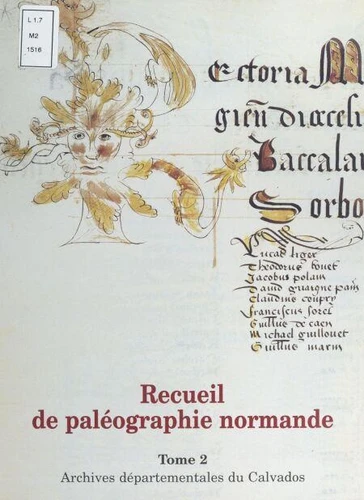 L 1.7
M2
1516
Rectoria M
gieñ diocesi
Baccalau
Sorbo
Lucas liger
Theodorus bouet
Jacobus polain
David guaigne pain
Claudius coupry
franciscus sorel
Guill̃us de caen
Michael guillouet
Guill̃us marin
Recueil
de paléographie normande
Tome 2
Archives départementales du Calvados